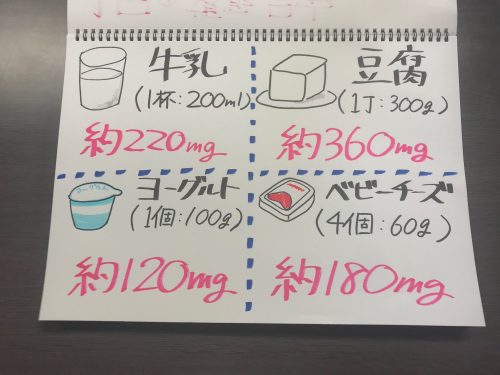 牛乳
(1杯:200ml)
約220mg
豆腐
(1丁:300g)
約360mg
ヨーグルト
ヨーグルト
(1個:100g)
約120mg
ベビーチーズ
(4個:60g)
約180mg